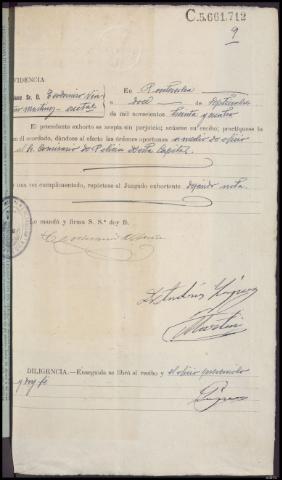 C.5.661.712
9
VIDENCIA
Sr. D. Teodomiro
En Pontevedra
a doce de Septiembre
de mil novecientos treinta y cuatro
El precedente exhorto se acepta sin perjuicio; acúsese su recibo; practíquese lo
en él acordado, dándose al efecto las órdenes oportunas a medio de oficio
al Sr. Comisario de Policía de esta Capital
y una vez cumplimentado, repórtese al Juzgado exhortante dejando nota.
Lo mandó y firma S. S.ª doy fe.
DILIGENCIA.—Enseguida se libró el recibo y el oficio prevenido
y doy fe